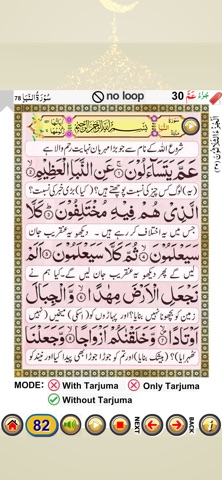 78 سُوْرَةُ النَّبَاِ no loop 30 عَمَّ جُزْءُ
سُوْرَةُ النَّبَاِ مَكِّيَّةٌ بِسْمِ اللّٰهِ الرَّحْمٰنِ الرَّحِيْمِ
شروع اللہ کے نام سے جو بڑا مہربان نہایت رحم والا ہے
عَمَّ يَتَسَآءَلُوْنَ عَنِ النَّبَاِ الْعَظِيْمِ
(یہ) لوگ کس چیز کی نسبت پوچھتے ہیں؟ (کیا) بڑی خبر کی نسبت؟
الَّذِيْ هُمْ فِيْهِ مُخْتَلِفُوْنَ كَلَّا
جس میں یہ اختلاف کر رہے ہیں دیکھو
سَيَعْلَمُوْنَ ثُمَّ كَلَّا سَيَعْلَمُوْنَ اَلَمْ
یہ عنقریب جان لیں گے پھر دیکھو یہ عنقریب جان لیں گے کیا ہم نے
نَجْعَلِ الْاَرْضَ مِهٰدًا وَّالْجِبَالَ
زمین کو بچھونا نہیں بنایا؟ اور پہاڑوں کو
اَوْتَادًا وَّخَلَقْنٰكُمْ اَزْوَاجًا وَّجَعَلْنَا
MODE: With Tarjuma Only Tarjuma
Without Tarjuma
82 NEXT BACK